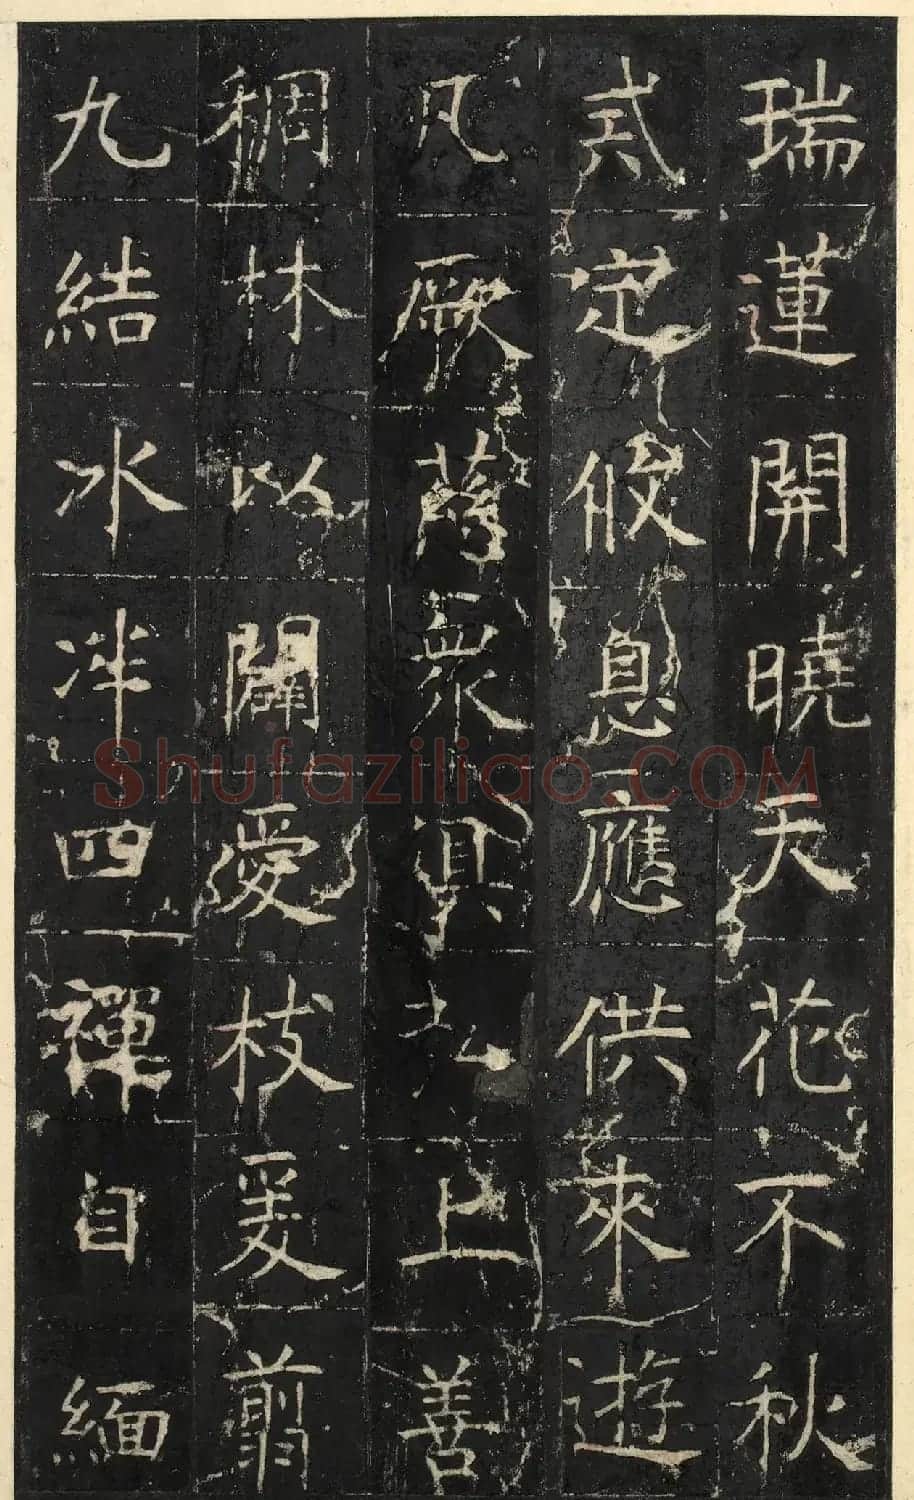 瑞蓮開曉天花不秋
定攸息應供來遊
凡厥眾具弘上善
稠林以闢愛枝爰翦
九結冰冸四禪自緬
Shufaziliao.COM